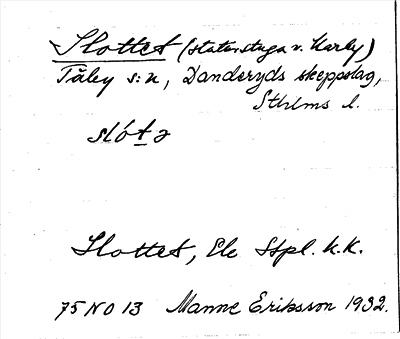 Slottet (statarstuga v. Karby)
Täby s:n, Danderyds skeppslag,
Sthlms l.
slót a
Slottet, Ele Stpl. k.k.
75 NO 13 Manne Eriksson 1932.